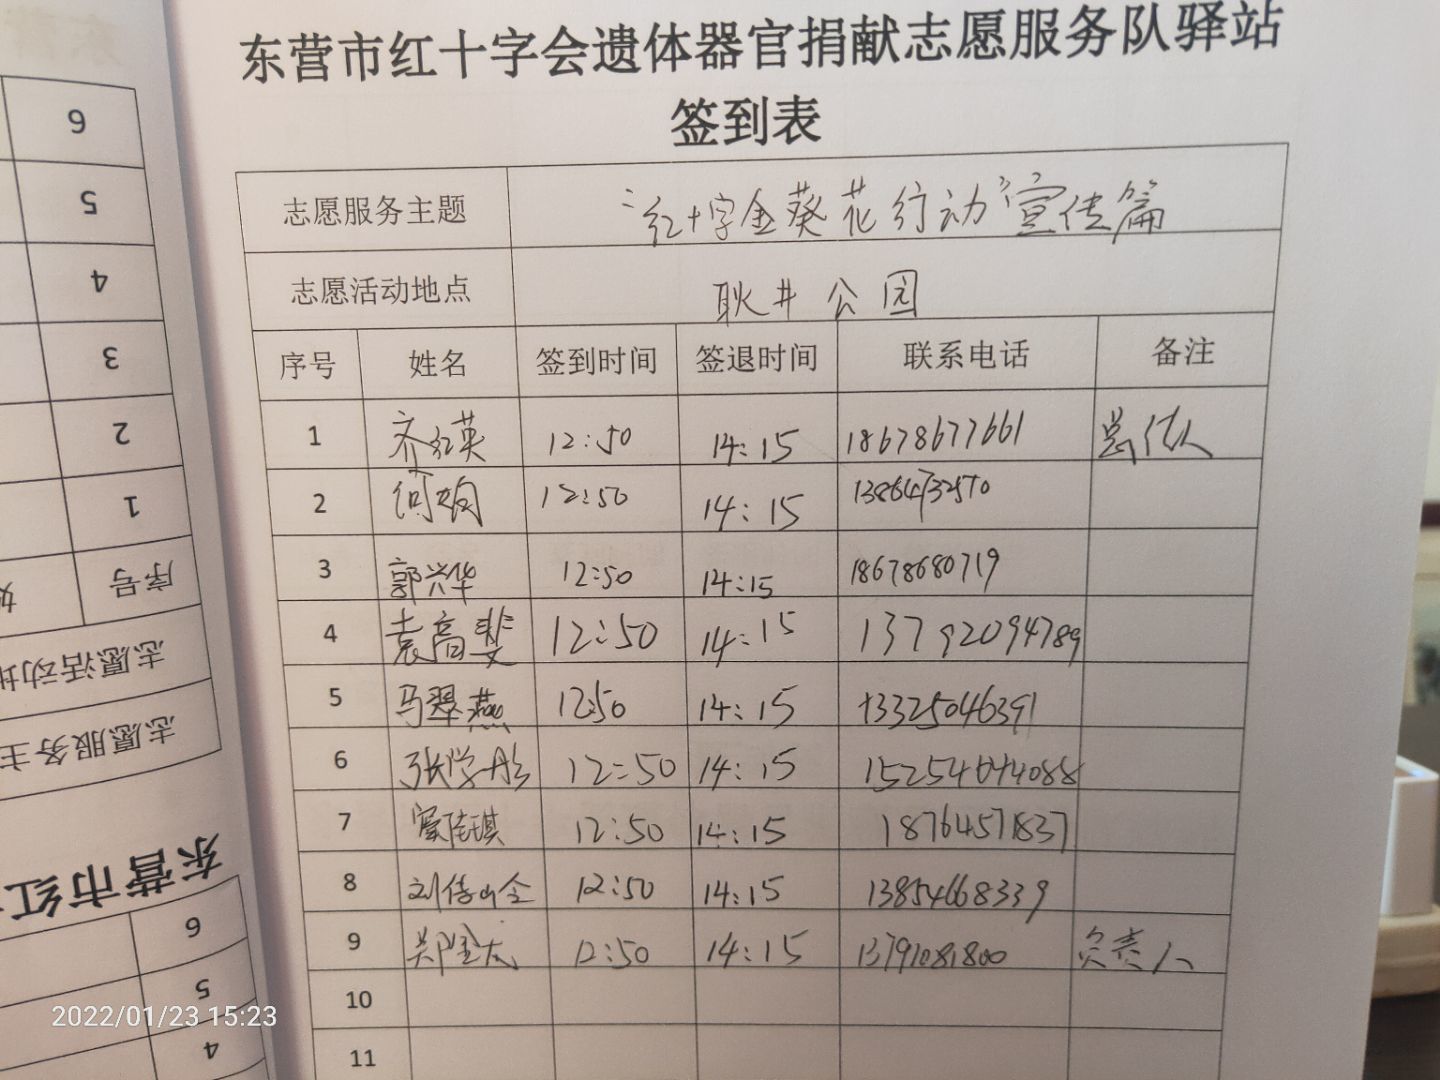 东营市红十字会遗体器官捐献志愿服务队驿站
签到表
志愿服务主题 "红十字金葵花行动"宣传篇
志愿活动地点 耿井公园
序号 姓名 签到时间 签退时间 联系电话 备注
1 齐红英 12:50 14:15 18678677661
2 12:50 14:15
3 郭兴华 12:50 14:15 18678680719
4 袁高斐 12:50 14:15 13792094789
5 马翠燕 12:50 14:15 13325046391
6 张学彤 12:50 14:15 15254644088
7 14:15 12:50 18764571837
8 12:50 14:15 13854668339
9 12:50 14:15 13791081800 负责人
10
11
6
5
4
3
2
1
序号
志愿活动地
志愿服务主
东营市红
6
5
4
2022/01/23 15:23